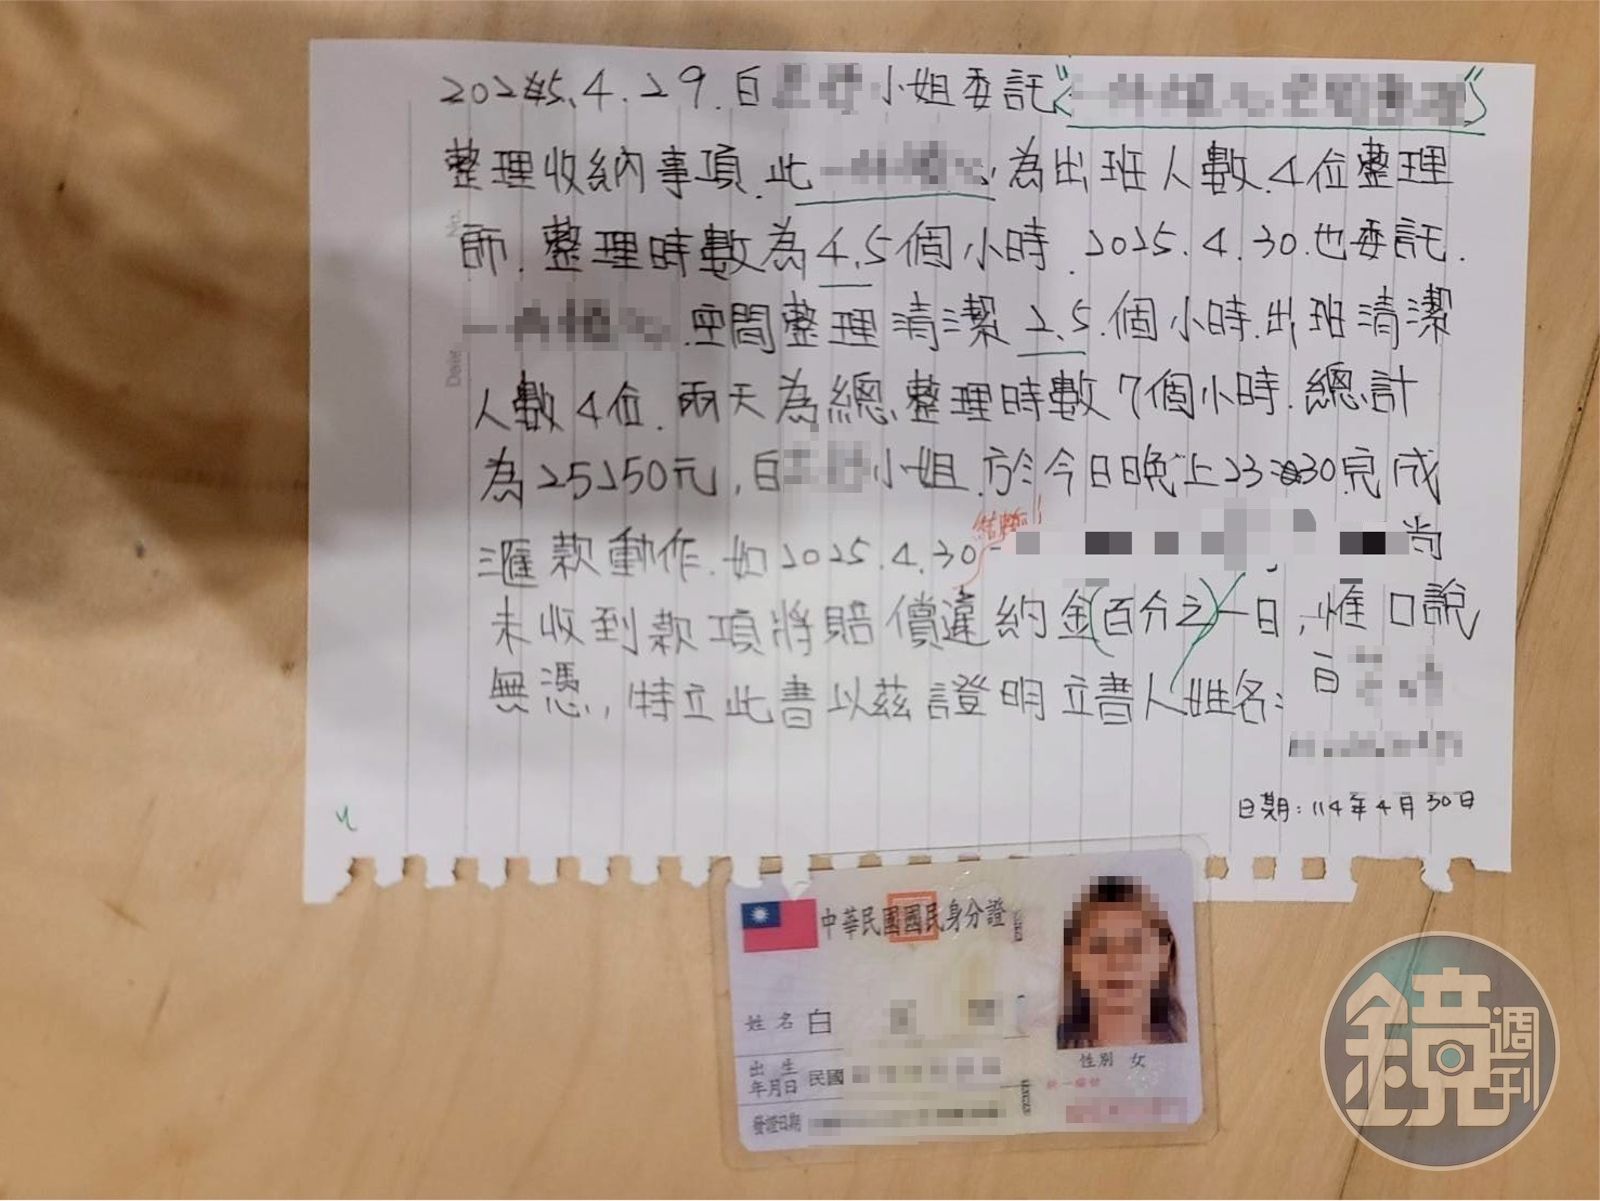 2025.4.29.白 小姐委託“ ”
整理收納事項.此 為出班人數.4位整理
師.整理時數為4.5個小時.2025.4.30.也委託.
.空間整理清潔2.5.個小時.出班清潔
人數4位.兩天為總整理時數7個小時.總計
為25250元,白 小姐.於今日晚上23:30完成
匯款動作.如2025.4.30 尚
未收到款項將賠償違約金(百分之)一日,惟口說
無憑,特立此書以茲證明立書人姓名:白
日期:114年4月30日
中華民國國民身分證
姓名 白
出生年月日 民國
性別 女
發證日期
鏡週刊